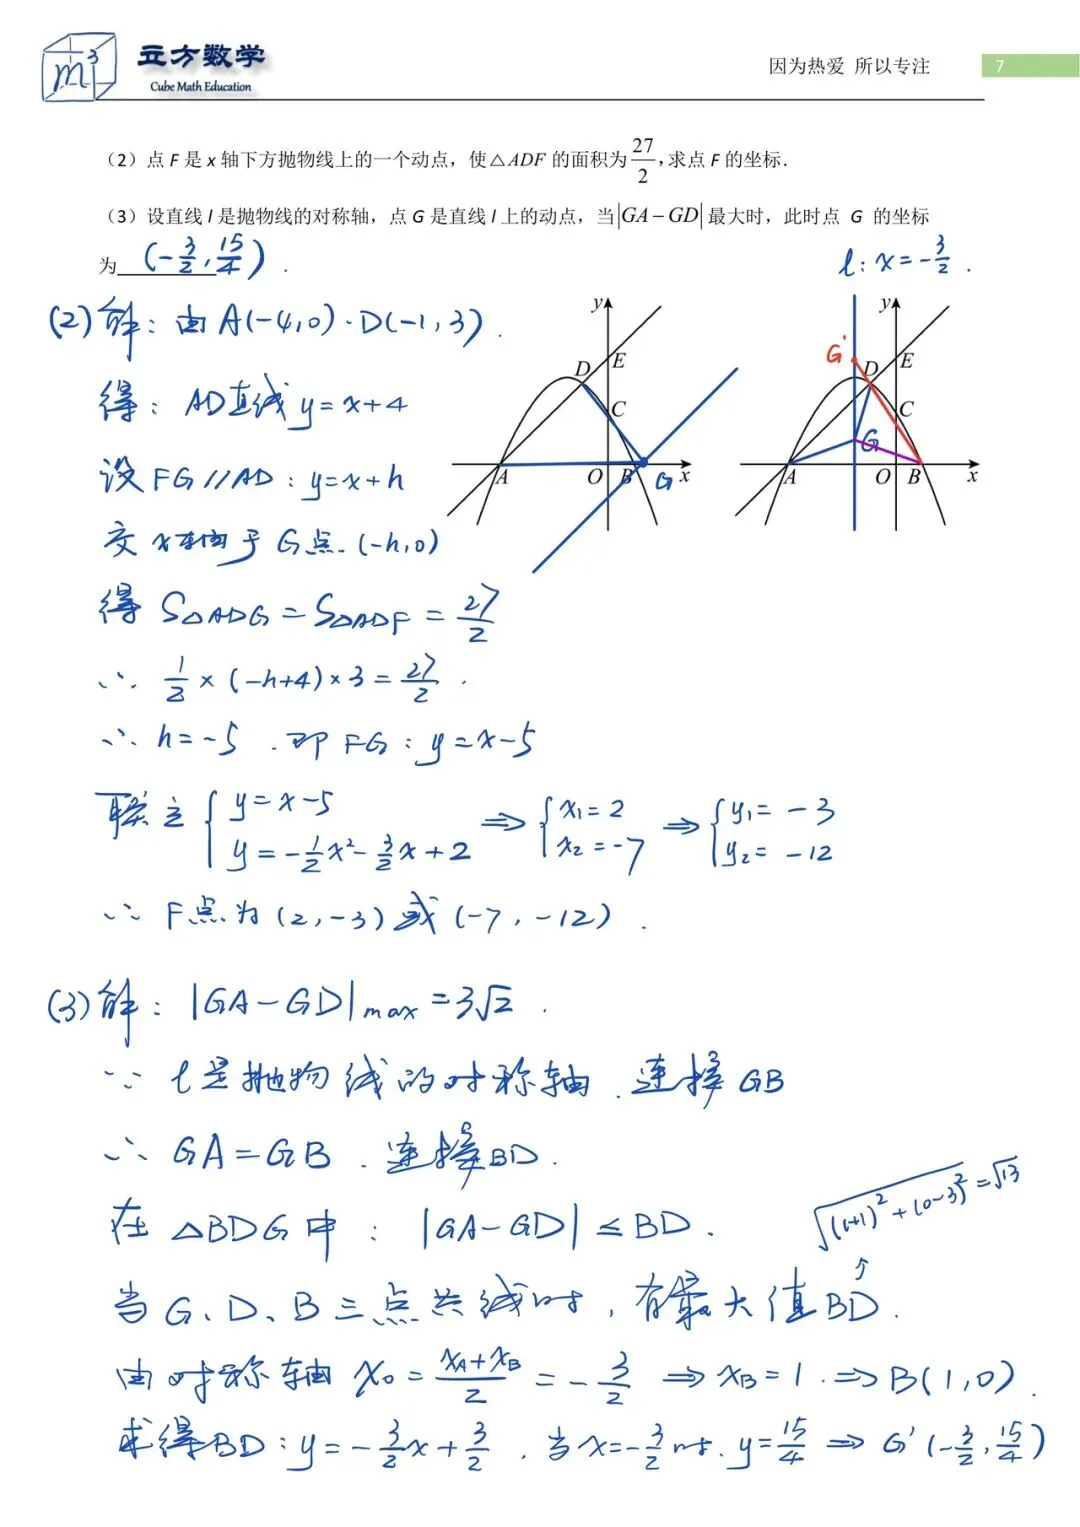 m³ 立方数学
Cube Math Education
因为热爱 所以专注 7
（2）点 F 是 x 轴下方抛物线上的一个动点，使△ADF 的面积为27/2，求点 F 的坐标.
（3）设直线 l 是抛物线的对称轴，点 G 是直线 l 上的动点，当|GA－GD|最大时，此时点 G 的坐标
为 (-3/2, 15/4) .
l: x=-3/2 .
y E D C A O B G x
y G' D E C G A O B x
(2) 解: 由 A(-4,0)·D(-1,3).
得: AD直线 y=x+4
设 FG//AD: y=x+h
交 x轴于 G点. (-h,0)
得 S△ADG = S△ADF = 27/2
∴ 1/2 × (-h+4) × 3 = 27/2 .
∴ h=-5 . 即 FG: y=x-5
联立 { y=x-5 y=-1/2x²-3/2x+2 ⇒ { x₁=2 x₂=-7 ⇒ { y₁=-3 y₂=-12
∴ F点为 (2,-3) 或 (-7,-12) .
(3) 解: |GA-GD|max=3√2 .
∵ l是抛物线的对称轴. 连接 GB
∴ GA=GB . 连接BD.
√((1+1)²+(0-3)²)=√13
在 △BDG 中: |GA-GD| ≤ BD.
当 G、D、B 三点共线时, 有最大值BD.
由对称轴 x₀ = (xA+xB)/2 = -3/2 ⇒ xB=1. ⇒ B(1,0).
求得BD: y=-3/2x+3/2 . 当 x=-3/2时. y=15/4 ⇒ G'(-3/2, 15/4)